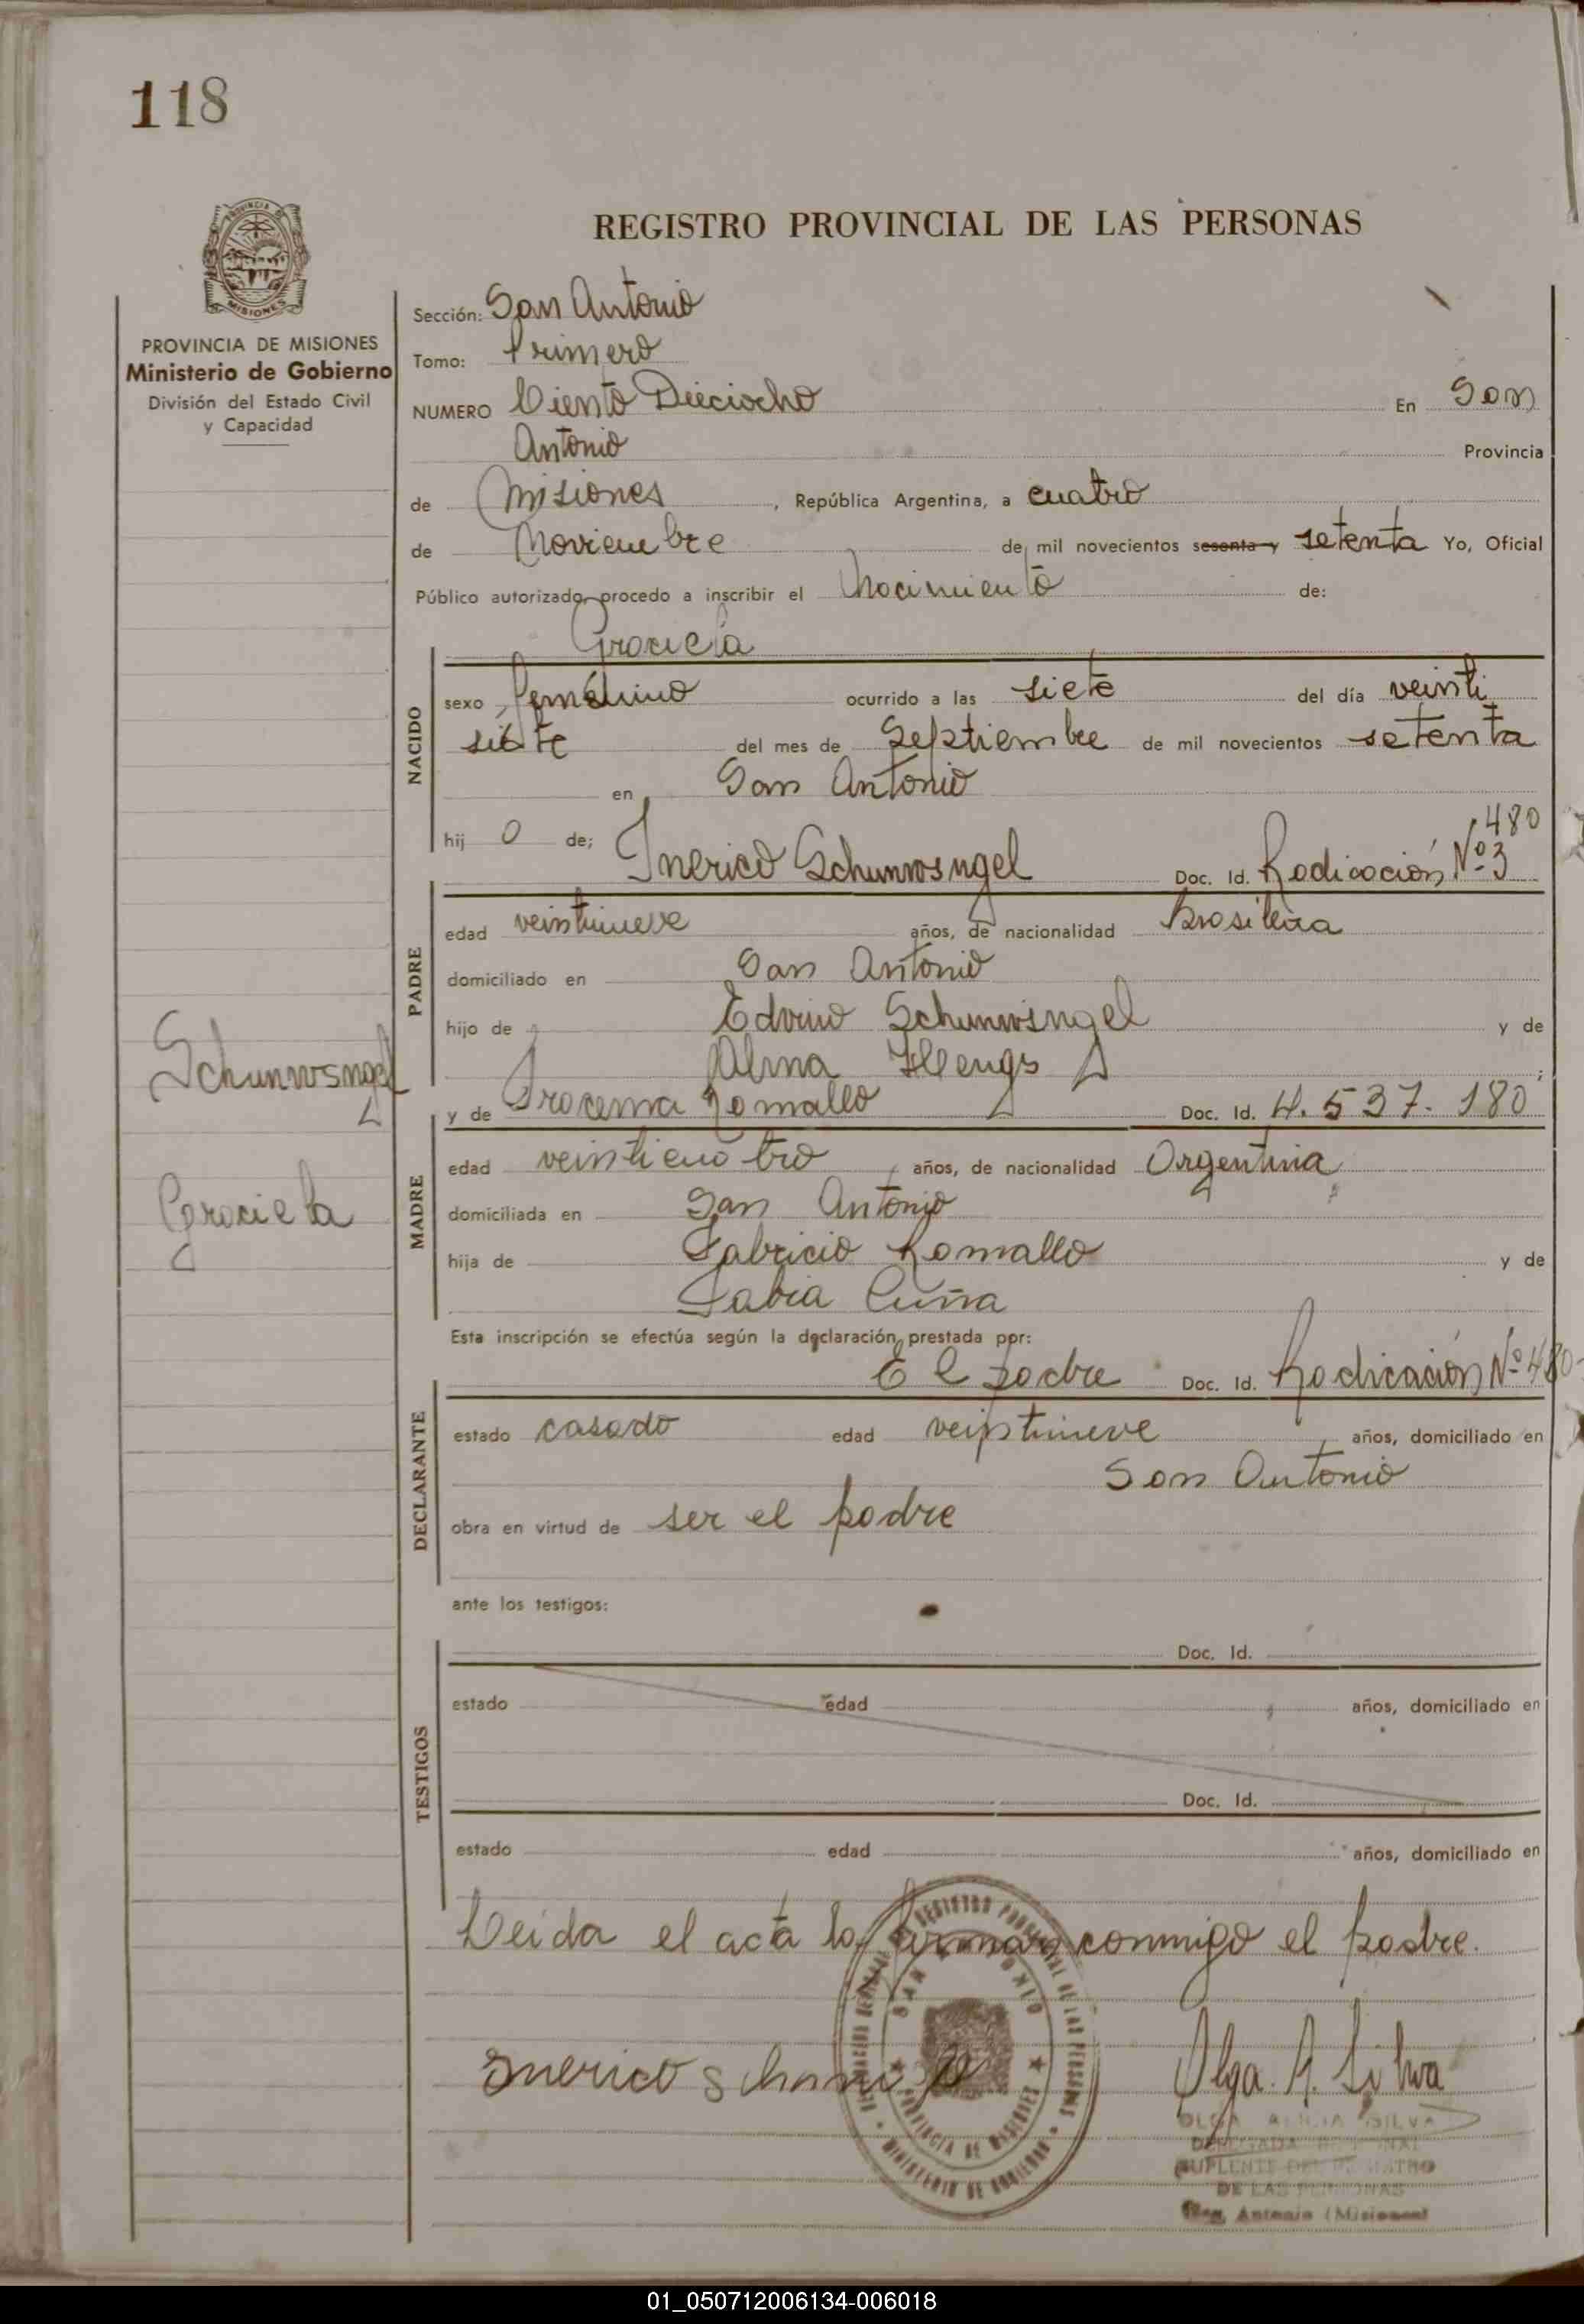 118
REGISTRO PROVINCIAL DE LAS PERSONAS
PROVINCIA DE MISIONES
Ministerio de Gobierno
División del Estado Civil
y Capacidad
Sección: San Antonio
Tomo: Primero
NUMERO Ciento Dieciocho En San
Antonio Provincia
de Misiones, República Argentina, a cuatro
de Noviembre de mil novecientos sesenta y setenta Yo, Oficial
Público autorizado, procedo a inscribir el Nacimiento de:
Graciela
NACIDO
sexo femenino ocurrido a las siete del día veinti
siete del mes de Septiembre de mil novecientos setenta
en San Antonio
hij o de; Inerico Schunwsngel Doc. Id. Radicación Nº 3 480
PADRE
edad veintinueve años, de nacionalidad Brasilera
domiciliado en San Antonio
hijo de Edvino Schunwsngel y de
Alma
Schunwsngel
y de Iracema Romallo Doc. Id. 4.537.180
MADRE
edad veinticuatro años, de nacionalidad Argentina
Graciela
domiciliada en San Antonio
hija de Fabricio Romallo y de
Fabia Cuña
Esta inscripción se efectúa según la declaración prestada por:
El padre Doc. Id. Radicación Nº 480
DECLARANTE
estado casado edad veintinueve años, domiciliado en
San Antonio
obra en virtud de ser el padre
ante los testigos:
TESTIGOS
Doc. Id.
estado edad años, domiciliado en
Doc. Id.
estado edad años, domiciliado en
Leida el acta la firman conmigo el padre.
REGISTRO PROVINCIAL DE LAS PERSONAS
SAN ANTONIO
PROVINCIA DE MISIONES
MINISTERIO DE GOBIERNO
Inerico
Olga A. Silva
OLGA ALICIA SILVA
DELEGADA
SUPLENTE DEL REGISTRO
DE LAS PERSONAS
San Antonio (Misiones)
01_050712006134-006018